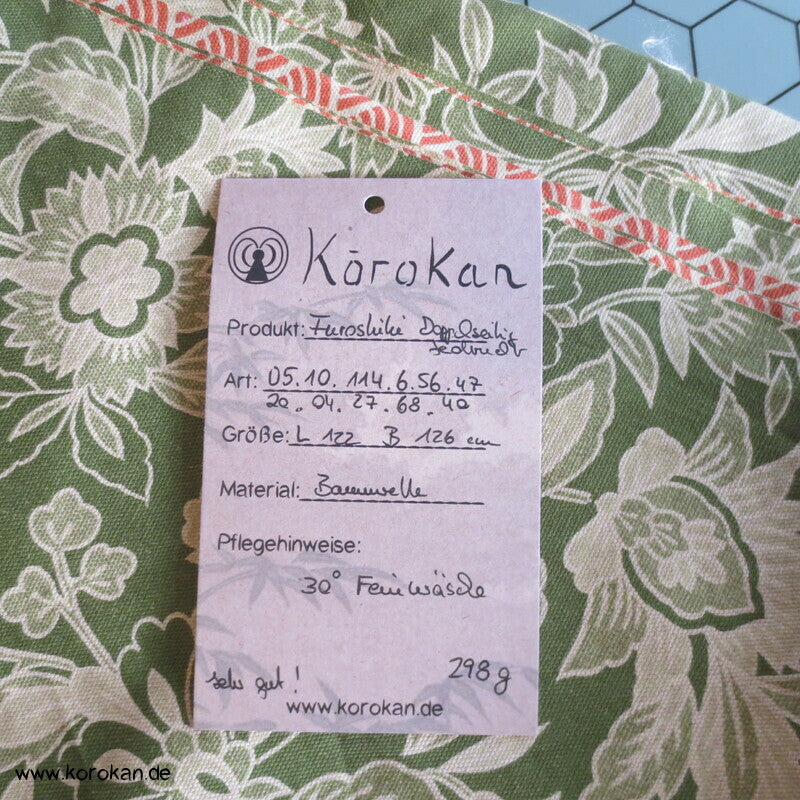 Kōrokan
Produkt: Furoshiki Doppelseitig
Art: 05.10.114.6.56.47
20.04.27.68.40
Größe: L 122 B 126 cm
Material: Baumwolle
Pflegehinweise:
30° Feinwäsche
298 g
sehr gut!
www.korokan.de
www.korokan.de